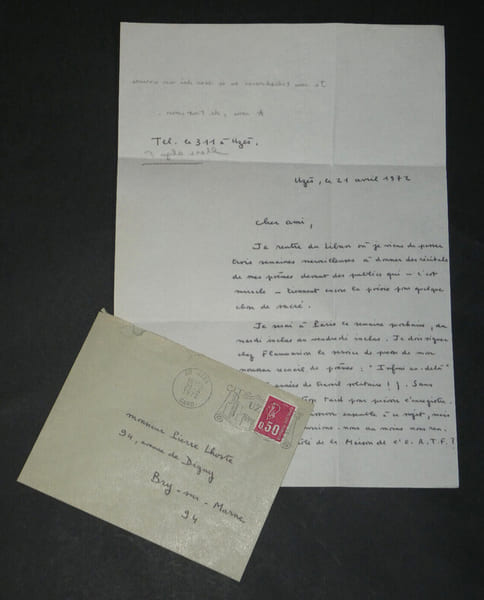 Tel. le 311 à Uzès.
Uzès, le 21 avril 1972
Cher ami,
Je rentre du Liban où je viens de passer
trois semaines merveilleuses à donner des récitals
de mes poèmes devant des publics qui - c'est
miracle - tiennent encore la poésie pour quelque
chose de sacré.
Je serai à Paris la semaine prochaine, du
mardi inclus au vendredi inclus. Je dois signer
chez Flammarion le service de presse de mon
nouveau recueil de poèmes : "Infini au-delà"
années de travail solitaire !). Sans
tard pour pouvoir s'enregistrer
ensemble à ce sujet, mais
- nous au moins nous
de la Maison de l'O.R.T.F. ?
UZÈS
1972
GARD
0,50
monsieur Pierre Lhoste
94, avenue de Digny
Bry-sur-Marne
94